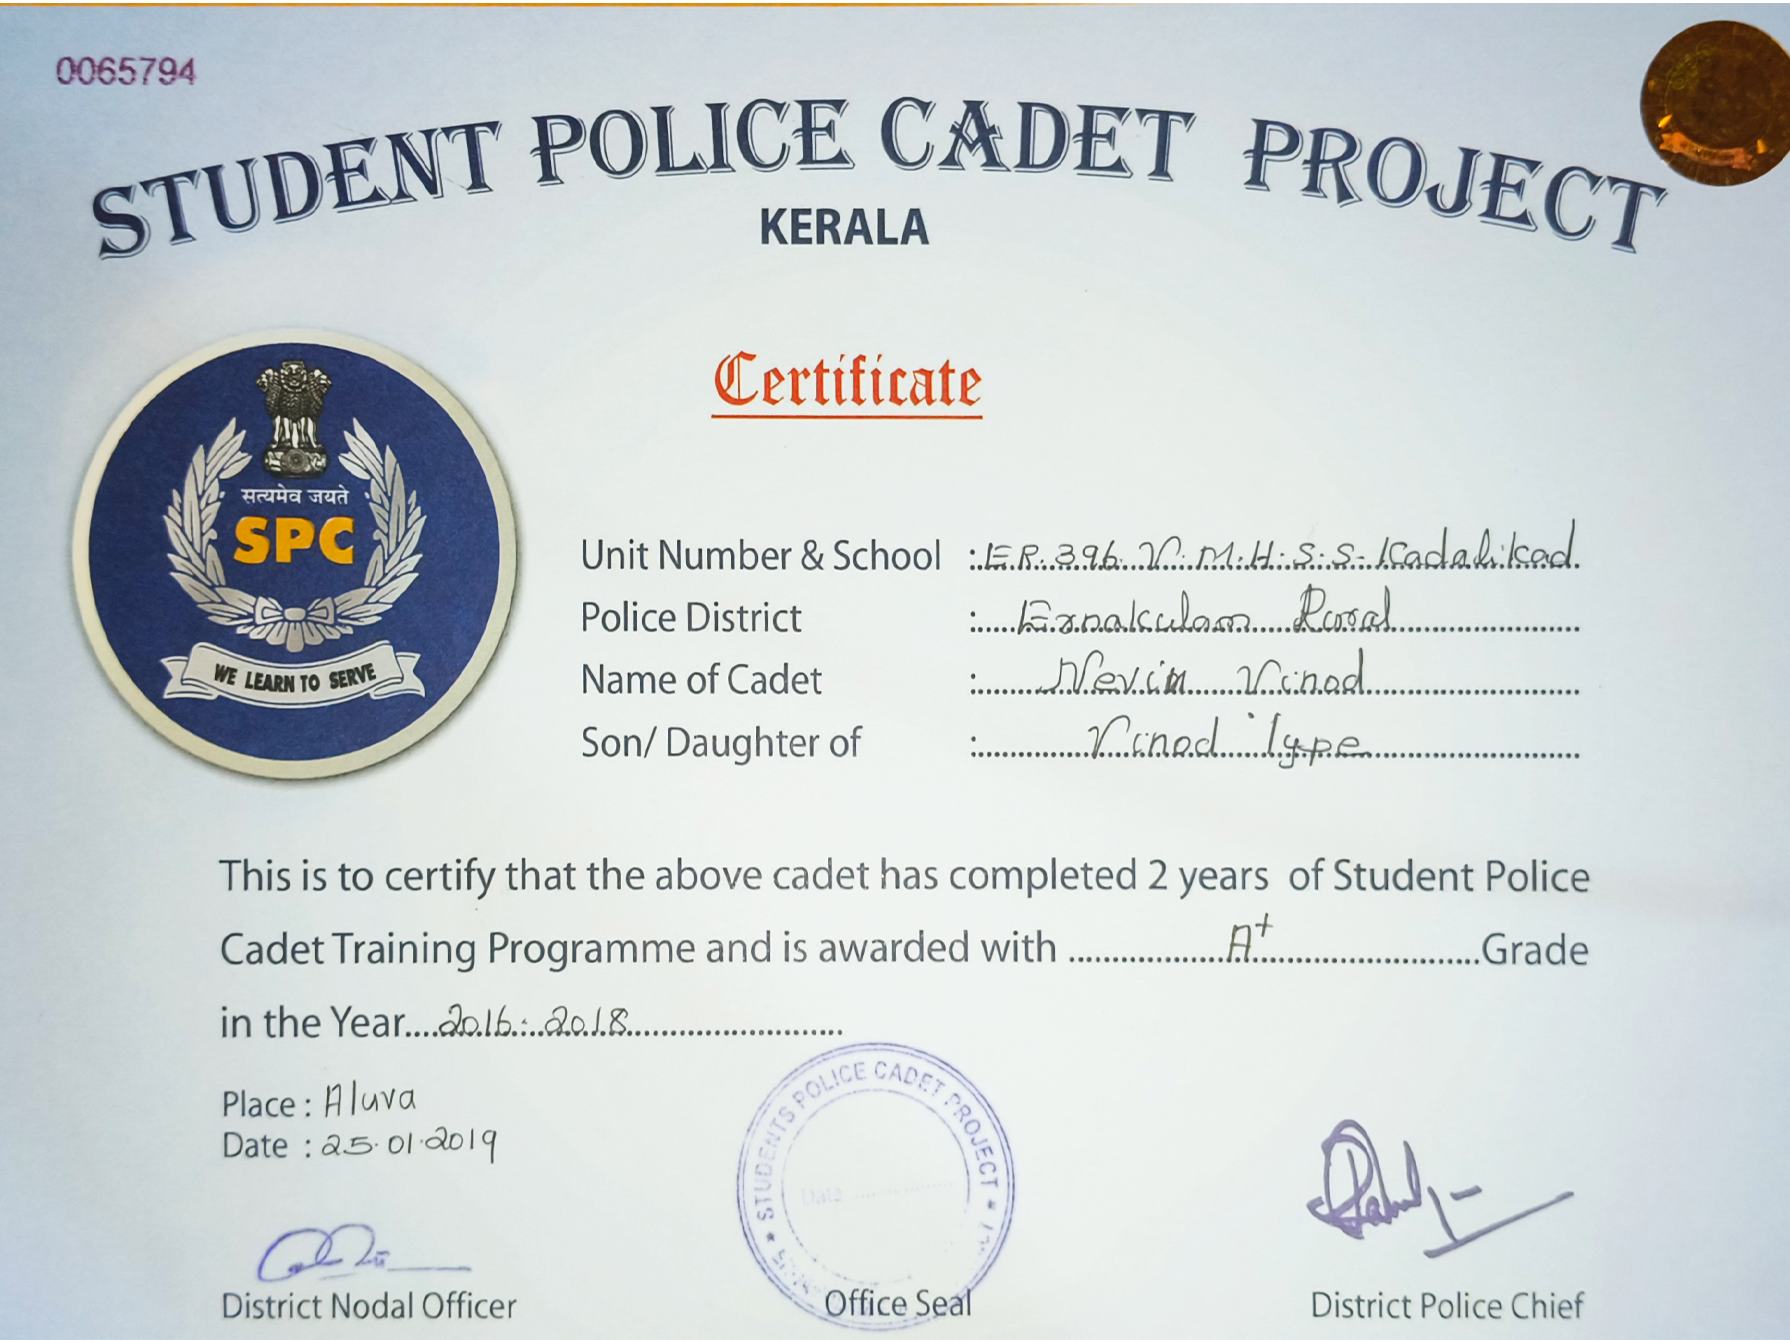 0065794
STUDENT POLICE CADET PROJECT
KERALA
Certificate
सत्यमेव जयते
SPC
WE LEARN TO SERVE
Unit Number & School : ER 396 V.M.H.S.S. Kadalikad
Police District : Ernakulam Rural
Name of Cadet : Nevin Vinod
Son/ Daughter of : Vinod Iype
This is to certify that the above cadet has completed 2 years of Student Police
Cadet Training Programme and is awarded with A+ Grade
in the Year 2016-2018
Place : Aluva
Date : 25.01.2019
STUDENTS POLICE CADET PROJECT
Date
District Nodal Officer
Office Seal
District Police Chief